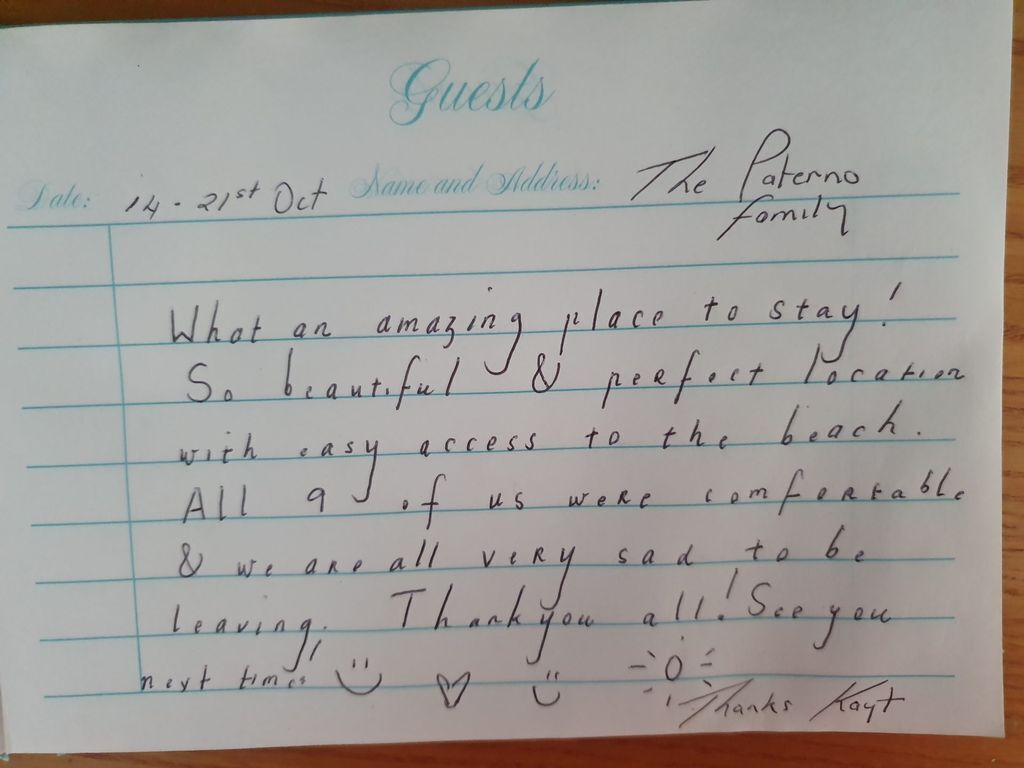 Guests
Date: 14 - 21st Oct Name and Address: The Paterno
family
What an amazing place to stay!
So beautiful & perfect location
with easy access to the beach.
All 9 of us were comfortable
& we are all very sad to be
leaving! Thank you all! See you
next time
Thanks Kayt